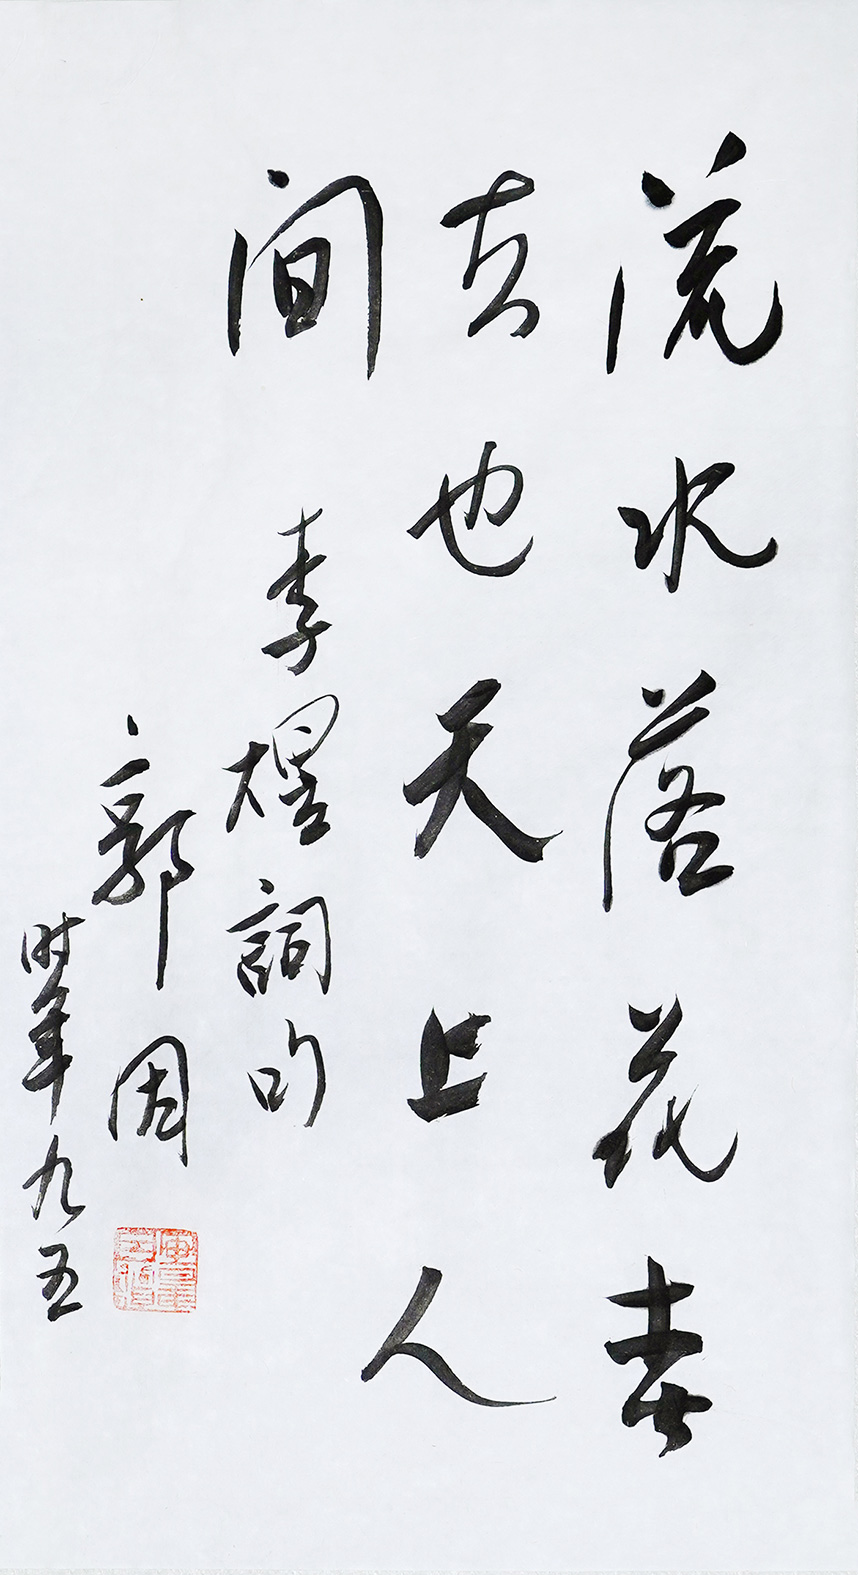 流水落花春
去也天上人
间 李煜詞句
郭因
时年九五